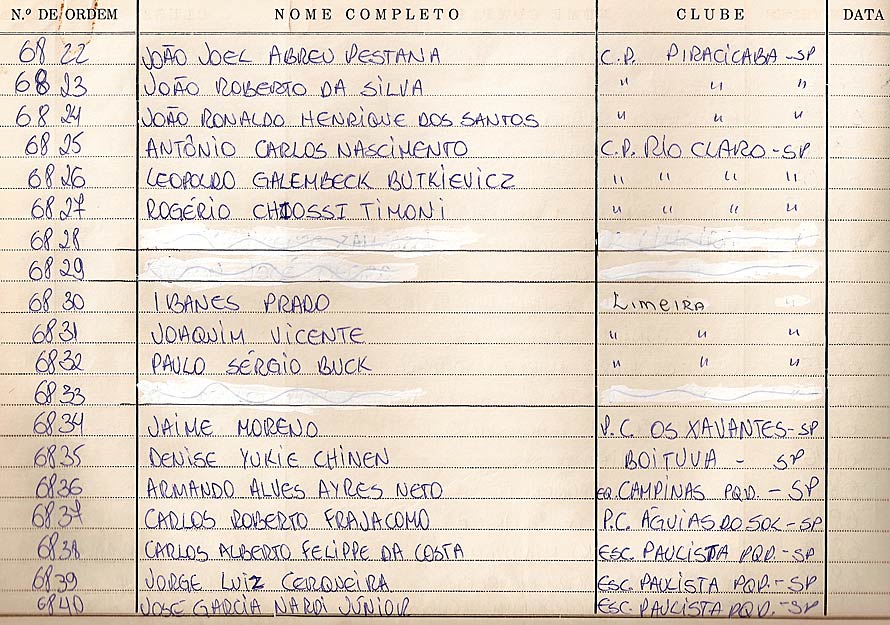 N.º DE ORDEM NOME COMPLETO CLUBE DATA
6822 JOÃO JOEL ABREU PESTANA C.P. PIRACICABA - SP
6823 JOÃO ROBERTO DA SILVA " " "
6824 JOÃO RONALDO HENRIQUE DOS SANTOS " " "
6825 ANTÔNIO CARLOS NASCIMENTO C.P. RIO CLARO - SP
6826 LEOPOLDO GALEMBECK BUTKIEVICZ " " " "
6827 ROGÉRIO CHIOSSI TIMONI " " " "
6828
6829
6830 IBANES PRADO LIMEIRA "
6831 JOAQUIM VICENTE " " "
6832 PAULO SÉRGIO BUCK " " "
6833
6834 JAIME MORENO P.C. OS XAVANTES - SP
6835 DENISE YUKIE CHINEN BOITUVA - SP
6836 ARMANDO ALVES AYRES NETO EQ. CAMPINAS PQD. - SP
6837 CARLOS ROBERTO FRAJACOMO P.C. ÁGUIAS DO SOL - SP
6838 CARLOS ALBERTO FELIPPE DA COSTA ESC. PAULISTA PQD. - SP
6839 JORGE LUIZ CERQUEIRA ESC. PAULISTA PQD. - SP
6840 JOSÉ GARCIA NARDI JÚNIOR ESC. PAULISTA PQD. - SP